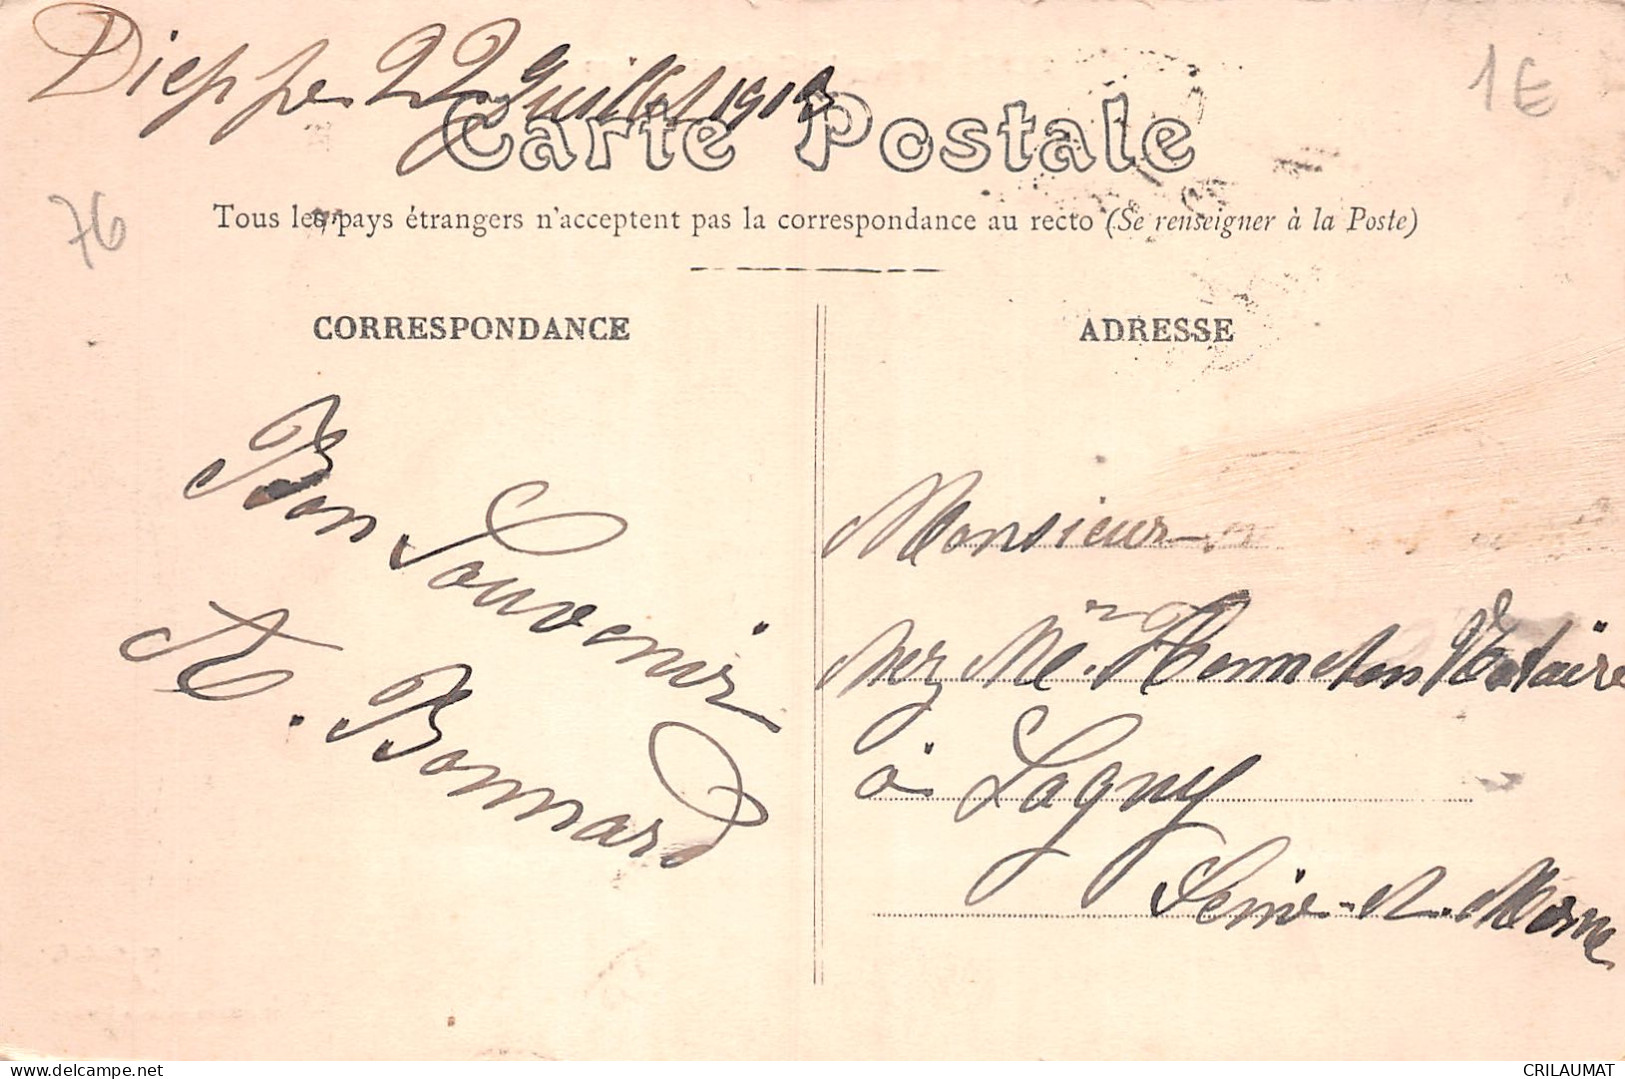 Dieppe 22 Juillet 1912
1 E
Carte Postale
76
Tous les pays étrangers n'acceptent pas la correspondance au recto (Se renseigner à la Poste)
CORRESPONDANCE
ADRESSE
Bon Souvenir
A. Bonnard
Monsieur
chez Me. Hommeton Notaire
à Lagny
Seine-et-Marne
delcampe.net
CRILAUMAT